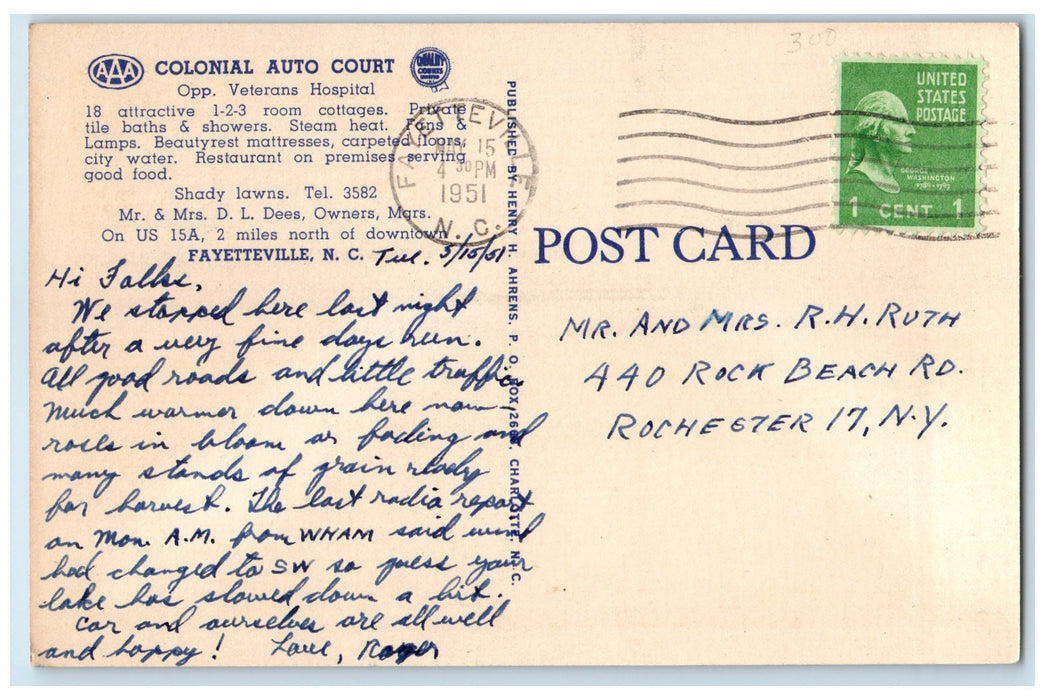 300
AAA COLONIAL AUTO COURT QUALITY COURTS
Opp. Veterans Hospital
18 attractive 1-2-3 room cottages. Private
tile baths & showers. Steam heat. Fans &
Lamps. Beautyrest mattresses, carpeted floors,
city water. Restaurant on premises serving
good food.
Shady lawns. Tel. 3582
Mr. & Mrs. D. L. Dees, Owners, Mgrs.
On US 15A, 2 miles north of downtown
FAYETTEVILLE, N. C.
Tue. 5/15/51
Hi Folks,
We stopped here last night
after a very fine days run.
All good roads and little traffic
Much warmer down here now—
roses in bloom or fading and
many stands of grain ready
for harvest. The last radio report
on Mon. A.M. from WHAM said wind
had changed to SW so guess your
lake has slowed down a bit.
Car and ourselves are all well
and happy! Love, Roger
PUBLISHED BY HENRY H. AHRENS, P. O. BOX, CHARLOTTE, N. C.
FAYETTEVILLE
MAY 15
4 30 PM
1951
N. C.
POST CARD
UNITED
STATES
POSTAGE
GEORGE
WASHINGTON
1789-1797
1 CENT 1
MR. AND MRS. R.H. RUTH
440 ROCK BEACH RD.
ROCHESTER 17, N.Y.